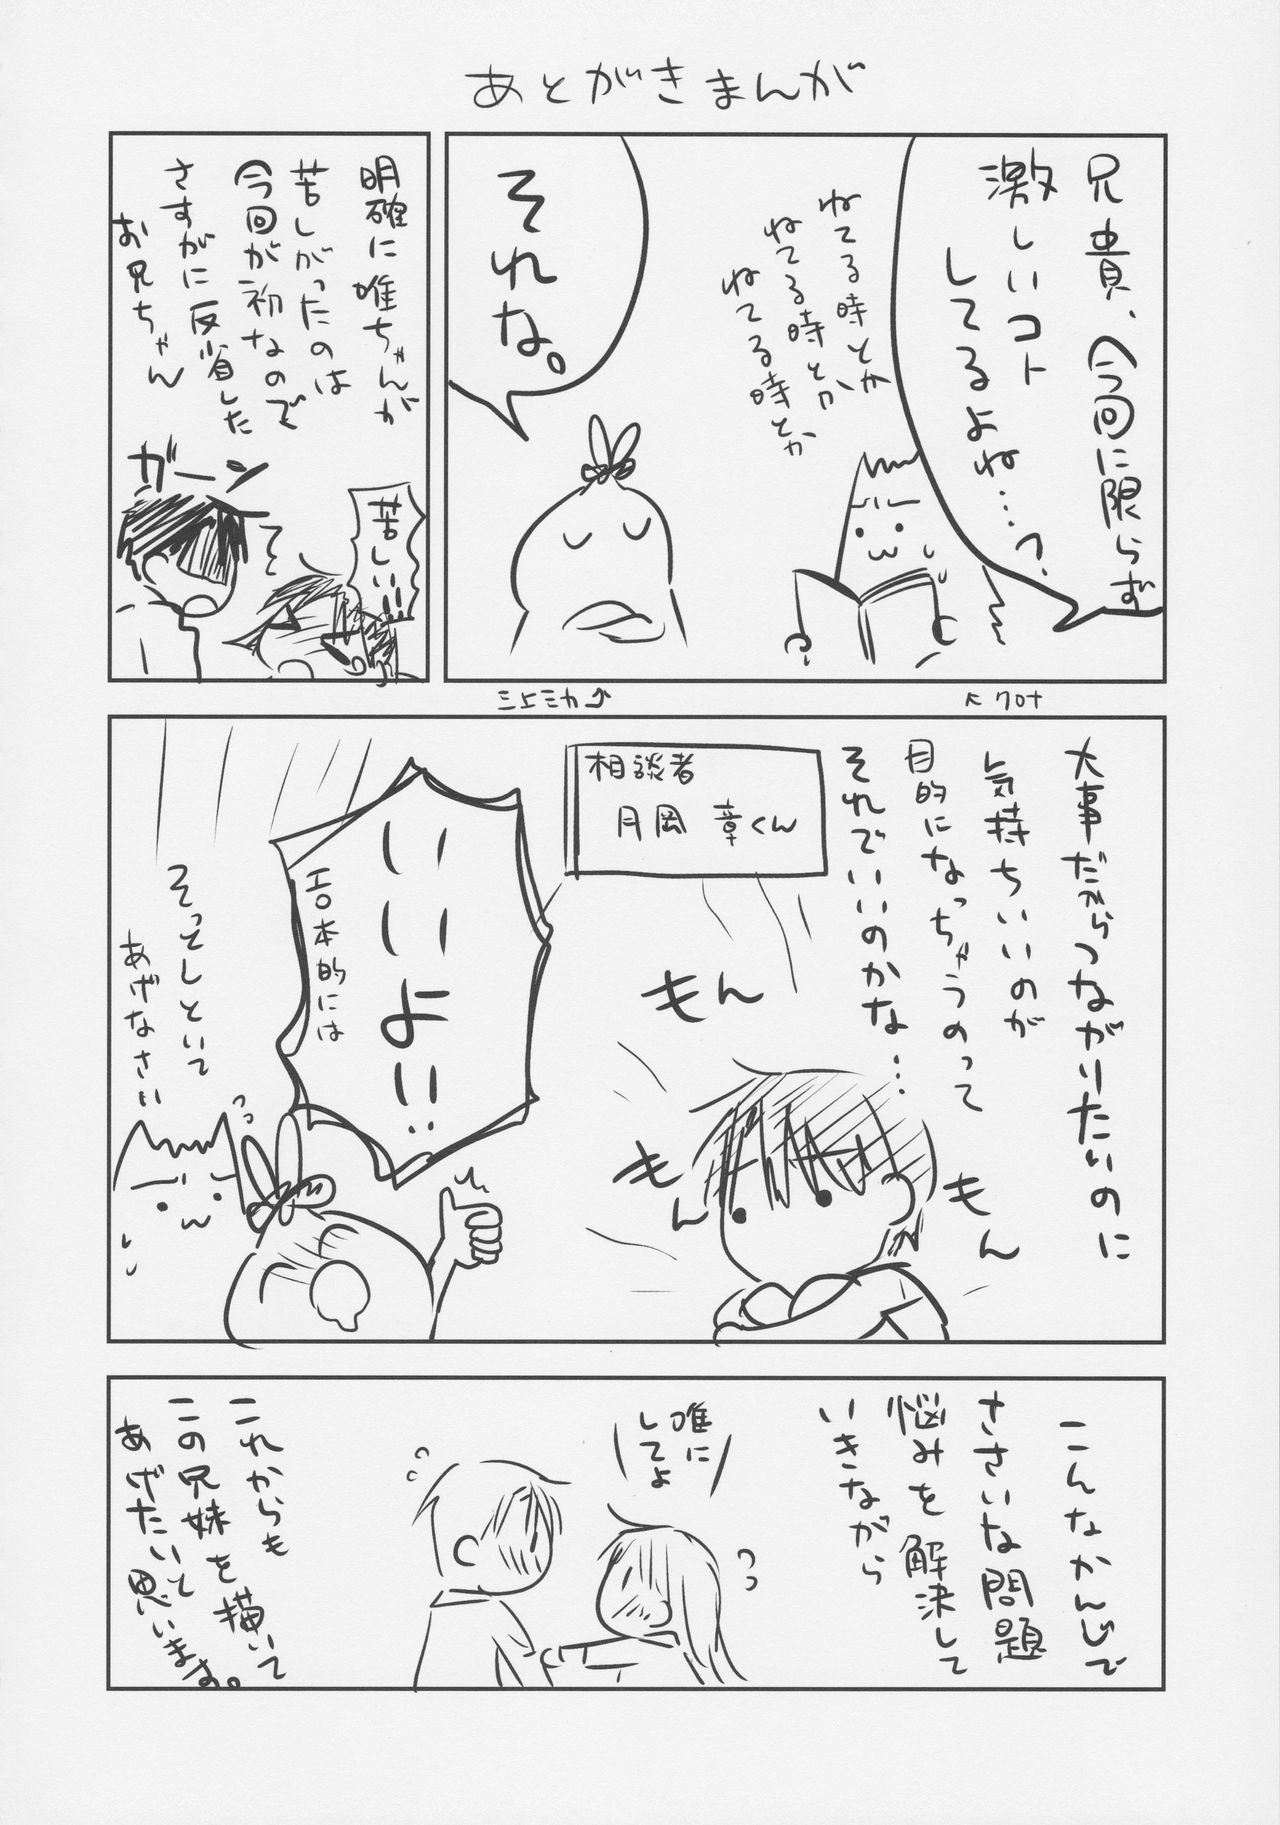 あとがきまんが
兄貴、今回に限らず
激しいコト
してるよね…?
ねてる時とか
ねてる時とか
ねてる時とか
それな。
クロナ
三上ミカ
明確に唯ちゃんが
苦しがったのは
今回が初なので
さすがに反省した
お兄ちゃん
ガーン
苦しい!!!
大事だからつながりたいのに
気持ちいいのが
目的になっちゃうのって
それでいいのかな…
相談者
月岡 章くん
もん
もん
もん
いいよ!!
エロ本的には
そっとしといて
あげなさい
こんなかんじで
ささいな問題
悩みを解決して
いきながら
唯に
してよ
これからも
この兄妹を描いて
あげたいって
思います。